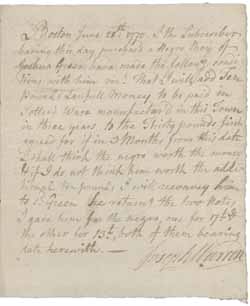 Boston June 28th 1770. I the Subscriber
having this day purchased a Negro Boy of
Joshua Green have made the following
with him viz. That I will add Ten
Pounds Lawfull Money to be paid in
Potters Ware manufactur'd in this Town
in three years to the thirty pounds first
agreed for if in 3 Months from this date
I shall think the negro worth the money
& if I do not think him worth the
ten pounds, I will reconvey him
to Sd. Green he the two notes,
I gave him for the negro, one for 17£ &
the other for 13£, both of them bearing
date herewith.
Joseph Warren